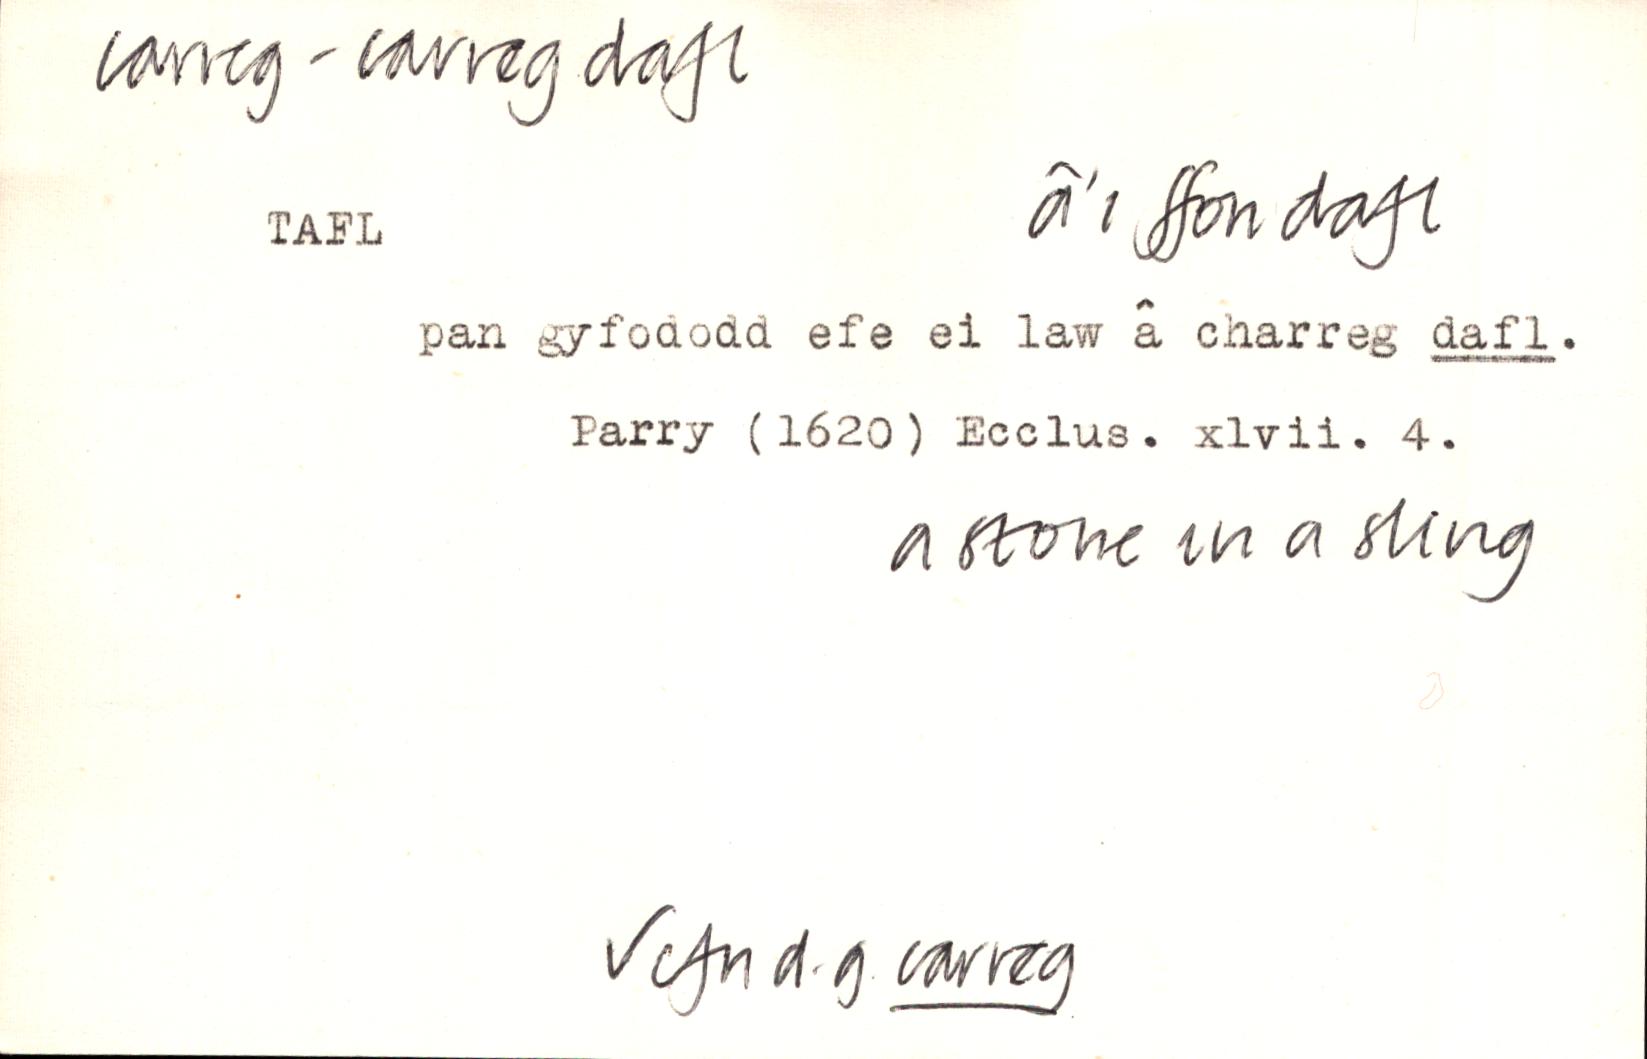 carreg - carreg dafl
TAFL
â'i ffon dafl
pan gyfododd efe ei law â charreg dafl.
Parry (1620) Ecclus. xlvii. 4.
a stone in a sling
√ cefn d.g. carreg